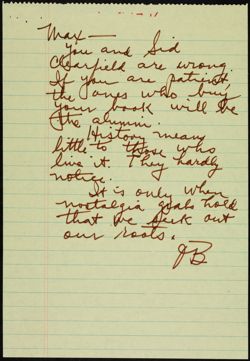 Max—
You and Sid
Clearfield are wrong.
If you are patient,
the ones who buy
your book will be
the alumni.
History means
little to those who
live it. They hardly
notice.
It is only when
nostalgia grabs hold
that we seek out
our roots.
JB